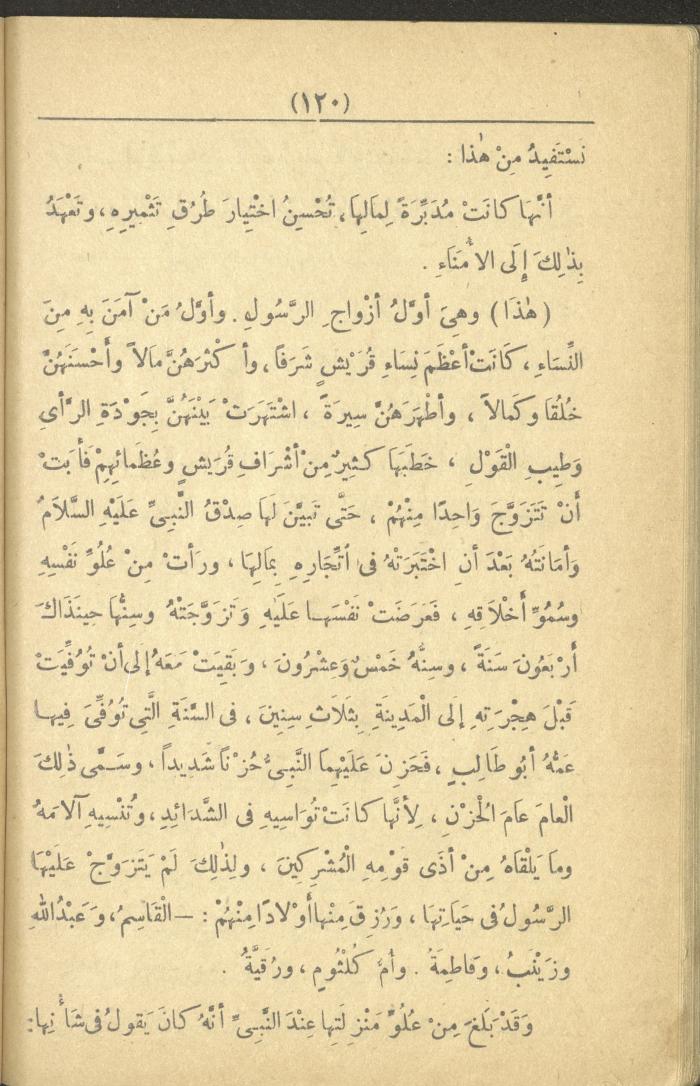 (١٢٠)
نَسْتَفِيدُ مِنْ هٰذا :
أنَّهَا كانَتْ مُدَبِّرَةً لِمَالِهَا، تُحْسِنُ اخْتِيارَ طُرُقِ تَثْمِيرِهِ، وتَعْهَدُ
بِذٰلِكَ إِلَى الأُمَنَاءِ .
(هٰذَا) وهِيَ أوَّلُ أزْواجِ الرَّسُولِ . وأوَّلُ مَنْ آمَنَ بِهِ مِنَ
النِّسَاءِ ، كَانَتْ أعْظَمَ نِسَاءِ قُرَيْشٍ شَرَفًا ، وأكْثَرَهُنَّ مَالاً وأحْسَنَهُنَّ
خُلُقًا وكَمالاً ، وأطْهَرَهُنَّ سِيرَةً ، اشْتَهَرَتْ بَيْنَهُنَّ بِجَوْدَةِ الرَّأىِ
وَطِيبِ الْقَوْلِ ، خَطَبَهَا كَثِيرٌ مِنْ أشْرَافِ قُرَيْشٍ وعُظَمائِهِمْ فَأبَتْ
أنْ تَتَزَوَّجَ وَاحِدًا مِنْهُمْ ، حَتَّى تَبَيَّنَ لَهَا صِدْقُ النَّبِيِّ عَلَيْهِ السَّلاَمُ
وَأمَانَتُهُ بَعْدَ أنِ اخْتَبَرَتْهُ فى اتِّجَارِهِ بِمَالِهَا ، ورَأتْ مِنْ عُلُوِّ نَفْسِهِ
وسُمُوِّ أَخْلَاقِهِ ، فَعَرَضَتْ نَفْسَهـا عَلَيْهِ وَتَزَوَّجَتْهُ وسِنُّها حِينَذَاكَ
أرْبَعُونَ سَنَةً ، وسِنُّهُ خَمْسٌ وَعشْرُونَ ، وَبَقِيَتْ مَعَهُ إلى أنْ تُوُفِّيَتْ
قَبْلَ هِجْرَتِهِ إلَى الْمَدِينَةِ بِثَلاَثِ سِنِينَ ، فى السَّنَةِ الَّتِي تُوُفِّىَ فِيهـا
عَمُّهُ أبُو طَالِبٍ ، فَحَزِنَ عَلَيْهِما النَّبِيُّ حُزْنًا شَدِيداً ، وسَـمَّى ذٰلِكَ
الْعامَ عَامَ الْحُزْنِ ، لِأنَّهَا كانَتْ تُوَاسِيهِ فى الشَّدَائِدِ ، وتُنْسِيهِ آلامَهُ
وما يَلْقَاهُ مِنْ أذَى قَوْمِهِ الْمُشْرِكِينَ ، ولِذٰلِكَ لَمْ يَتَزَوَّجْ عَلَيْهَا
الرَّسُولُ فى حَيَاتِهَا ، وَرُزِقَ مِنْها أوْلادًا مِنْهُمْ : — الْقَاسِمُ ، وَعَبْدُ اللهِ
وزَيْنَبُ ، وَفَاطِمَةُ . وأمُّ كُلْثُومٍ ، ورُقَيَّةُ .
وَقَدْ بَلَغَ مِنْ عُلُوِّ مَنْزِلَتِها عِنْدَ النَّبِيِّ أنَّهُ كانَ يَقولُ فى شَأْنِها :